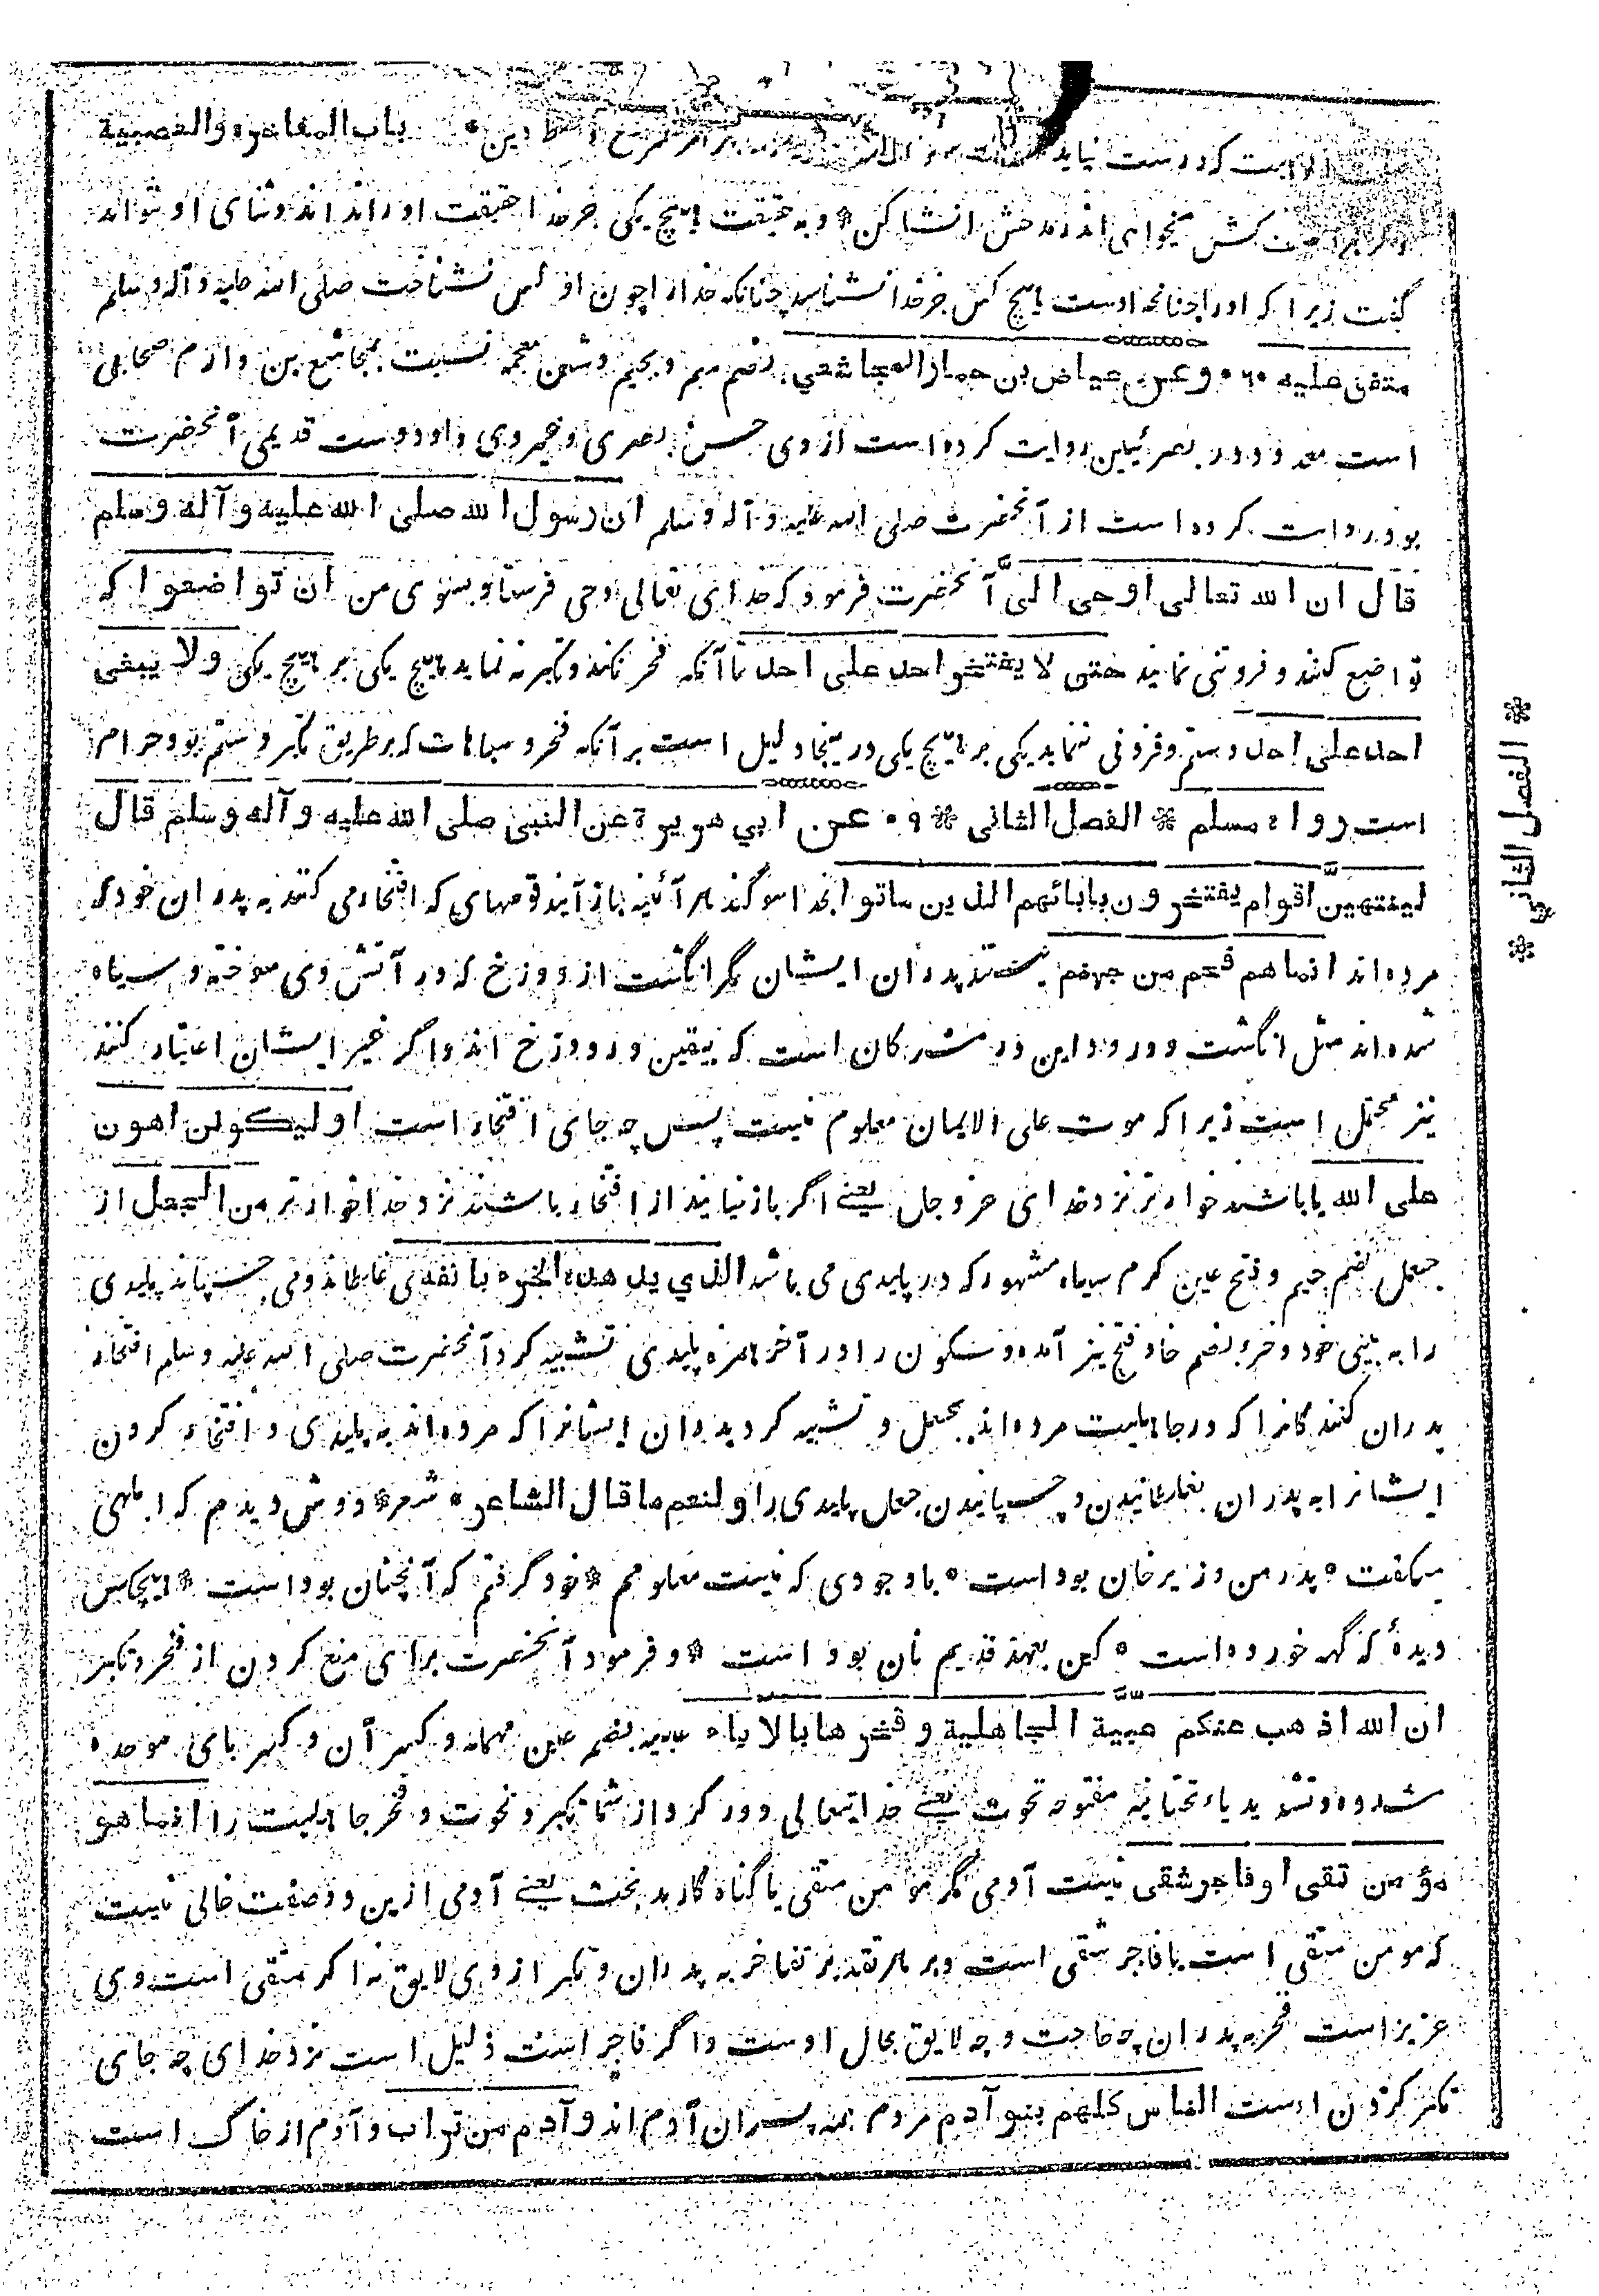 باب المفاخرة والعصبية
است که درست نیاید
هر وصف کش میخواهی اندر مدحش انشا کن * و به حقیقت هیچ یکی جز خدا حقیقت او را نداند و ثنای او نتواند
گفت زیرا که او را چنانچه اوست هیچ کس جز خدا نشناسد چنانکه خدا را چون او کس نشناخت صلی الله علیه و آله و سلم
متفق علیه ۰ ۶ ۰ وعن عیاض بن حمار المجاشعي بضم میم و بجیم و شین معجمه نسبت بمجاشع بن دارم صحابی
است معدود در بصرئیین روایت کرده است از وی حسن بصری و غیر وی و او دوست قدیمی آنحضرت
بود روایت کرده است از آنحضرت صلی الله علیه و آله و سلم ان رسول الله صلی الله علیه و آله وسلم
قال ان الله تعالی اوحی الیّ آنحضرت فرمود که خدای تعالی وحی فرستاد بسوی من ان تواضعوا که
تواضع کنند و فروتنی نمایند حتی لا یفتخر احد علی احد تا آنکه فخر نکند و تکبر نه نماید هیچ یکی بر هیچ یکی ولا یبغی
احد علی احد و ستم و فزونی ننماید یکی بر هیچ یکی و در ینجا دلیل است بر آنکه فخر و مباهات که بر طریق تکبر و ستم بود حرام
است رواه مسلم * الفصل الثاني * ۹ ۰ عن ابي هریرة عن النبي صلی الله علیه و آله وسلم قال
لینتهینّ اقوام یفتخرون بابائهم الذین ماتوا بخدا سوگند هر آئینه باز آیند قومهای که افتخار می کنند به پدران خود که
مرده اند انما هم فحم من جهنم نیستند پدران ایشان مگر انگشت از دوزخ که در آتش وی سوخته و سیاه
شده اند مثل انگشت و ورود این در مشرکان است که بیقین در دوزخ اند و اگر خیر ایشان اعتبار کنند
نیز محتمل است زیرا که موت علی الایمان معلوم نیست پس چه جای افتخار است او لیکونن اهون
علی الله یا باشند خوار تر نزد خدای عز و جل یعنے اگر باز نیایند از افتخار باشند نزد خدا خوار تر من الجعل از
جعل بضم جیم و فتح عین کرم سیاه مشهور که در پلیدی می باشد الذي یدهده الخرء بانفه می غلطاند و می چسپاند پلیدی
را به بینی خود و خرء بضم خا و فتح نیز آمده و سکون را و در آخر همزه پلیدی تشبیه کرد آنحضرت صلی الله علیه و سلم افتخار
پدران کنند گانرا که در جاهلیت مرده اند بجعل و تشبیه کرد پدران ایشانرا که مرده اند به پلیدی و افتخار کردن
ایشانرا به پدران بغلطانیدن و چسپانیدن جعل پلیدی را و لنعم ما قال الشاعر ۰ شعر * دوش دیدم که ابلهی
میگفت ۰ پدر من وزیر خان بود است ۰ با وجودی که نیست معلومم * خود گرفتم که آنچنان بود است * هیچکس
دیدهٔ که گهه خورده است ۰ کین بعهد قدیم نان بود است * و فرمود آنحضرت برای منع کردن از فخر و تکبر
ان الله اذهب عنکم عبیة الجاهلیة و فخرها بالاباء عبیه بضم عین مهمله و کسر آن و کسر بای موحده
مشدده و تشدید یاء تحتانیه مفتوحه نخوت یعنے خدایتعالی دور کرد از شما تکبر و نخوت و فخر جاهلیت را انما هو
مؤمن تقی او فاجر شقی نیست آدمی مگر مومن متقی یا گناه گار بد بخت یعنے آدمی ازین دو صفت خالی نیست
که مومن متقی است یا فاجر شقی است و بر هر تقدیر تفاخر به پدران و تکبر از وی لایق نه اگر متقی است وی
عزیز است فخر به پدران چه حاجت و چه لایق بحال اوست و اگر فاجر است ذلیل است نزد خدای چه جای
تکبر کردن اوست الناس کلهم بنو آدم مردم همه پسران آدم اند و آدم من تراب و آدم از خاک است
* الفصل الثاني *